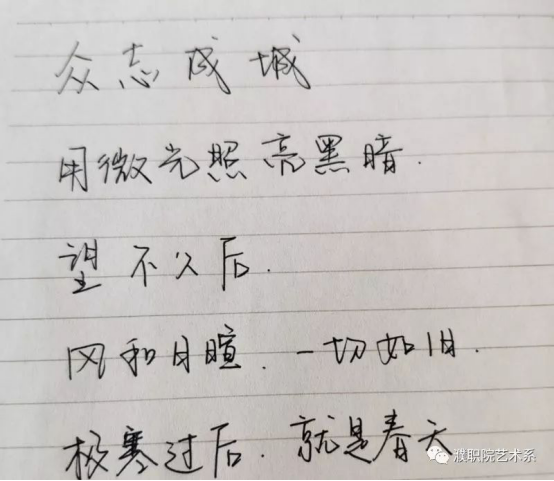 众志成城
用微光照亮黑暗.
望不久后.
风和日暄.一切如旧.
极寒过后.就是春天
濮职院艺术系